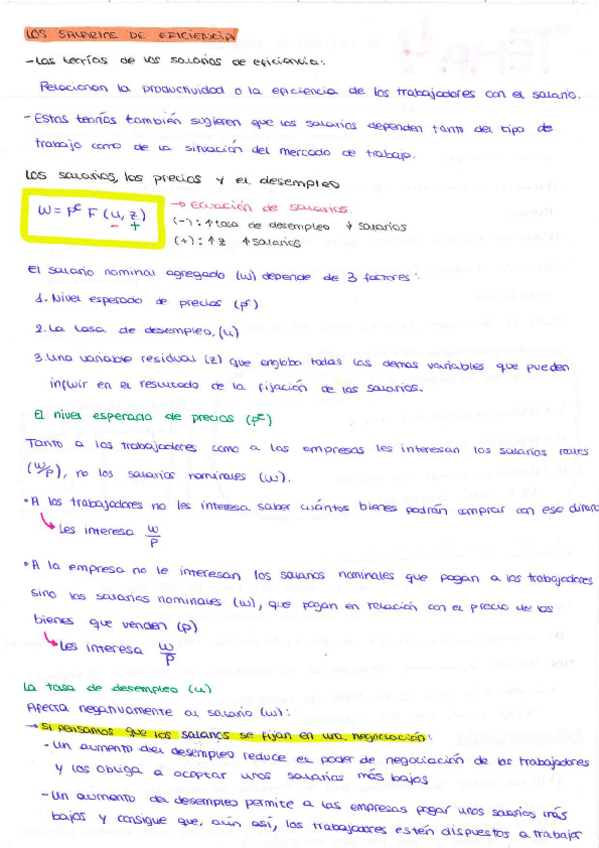 LOS SALARIOS DE EFICIENCIA
- Las teorías de los salarios de eficiencia:
Relacionan la productividad o la eficiencia de los trabajadores con el salario.
- Estas teorías también sugieren que los salarios dependen tanto del tipo de
trabajo como de la situación del mercado de trabajo.
Los salarios, los precios y el desempleo
W = Pᵉ F (u, z)
- +
→ Ecuación de salarios.
(-): ↑ tasa de desempleo ↓ salarios
(+): ↑ z ↑ salarios
El salario nominal agregado (w) depende de 3 factores:
1. Nivel esperado de precios (pᵉ)
2. La tasa de desempleo, (u)
3. Una variable residual (z) que engloba todas las demas variables que pueden
influir en el resultado de la fijación de los salarios.
El nivel esperado de precios (pᵉ)
Tanto a los trabajadores como a las empresas les interesan los salarios reales
(w/p), no los salarios nominales (w).
• A los trabajadores no les interesa saber cuántos bienes podrán comprar con ese diner
↳ Les interesa w/p
• A la empresa no le interesan los salarios nominales que pagan a los trabajadores
sino los salarios nominales (w), que pagan en relación con el precio de los
bienes que venden (p)
↳ Les interesa w/p
La tasa de desempleo (u)
Afecta negativamente al salario (w):
→ Si pensamos que los salarios se fijan en una negociación:
- Un aumento del desempleo reduce el poder de negociación de los trabajadores
y los obliga a aceptar unos salarios más bajos
- Un aumento del desempleo permite a las empresas pagar unos salarios más
bajos y consigue que, aún así, los trabajadores estén dispuestos a trabajar